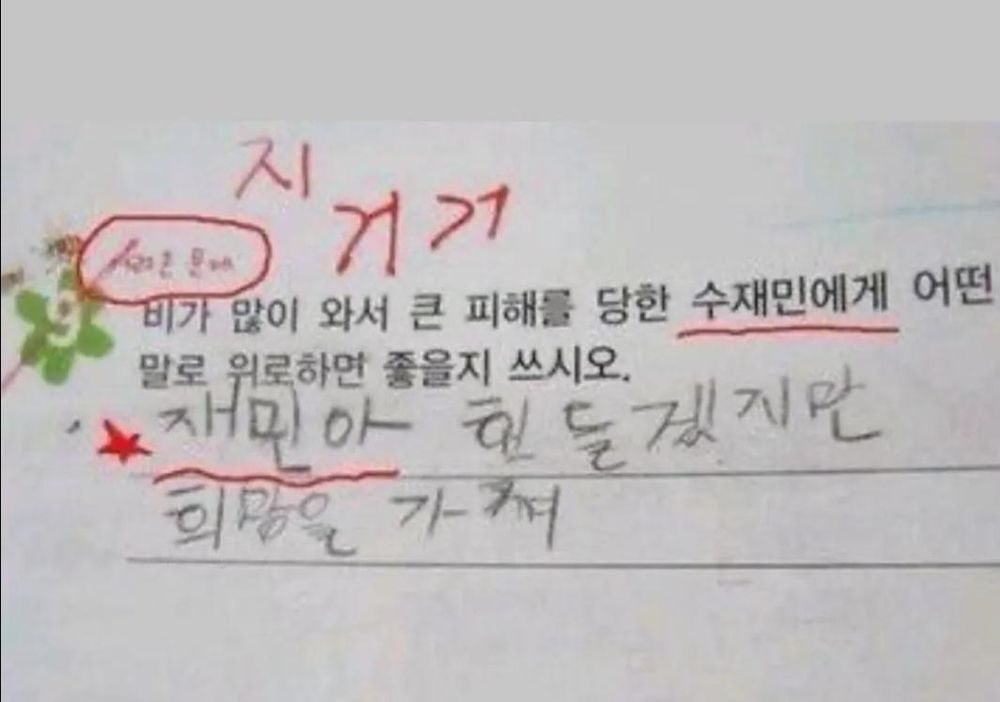 지
거거
문제
비가 많이 와서 큰 피해를 당한 수재민에게 어떤
말로 위로하면 좋을지 쓰시오.
재민아 힌들겠지만
희망을 가져